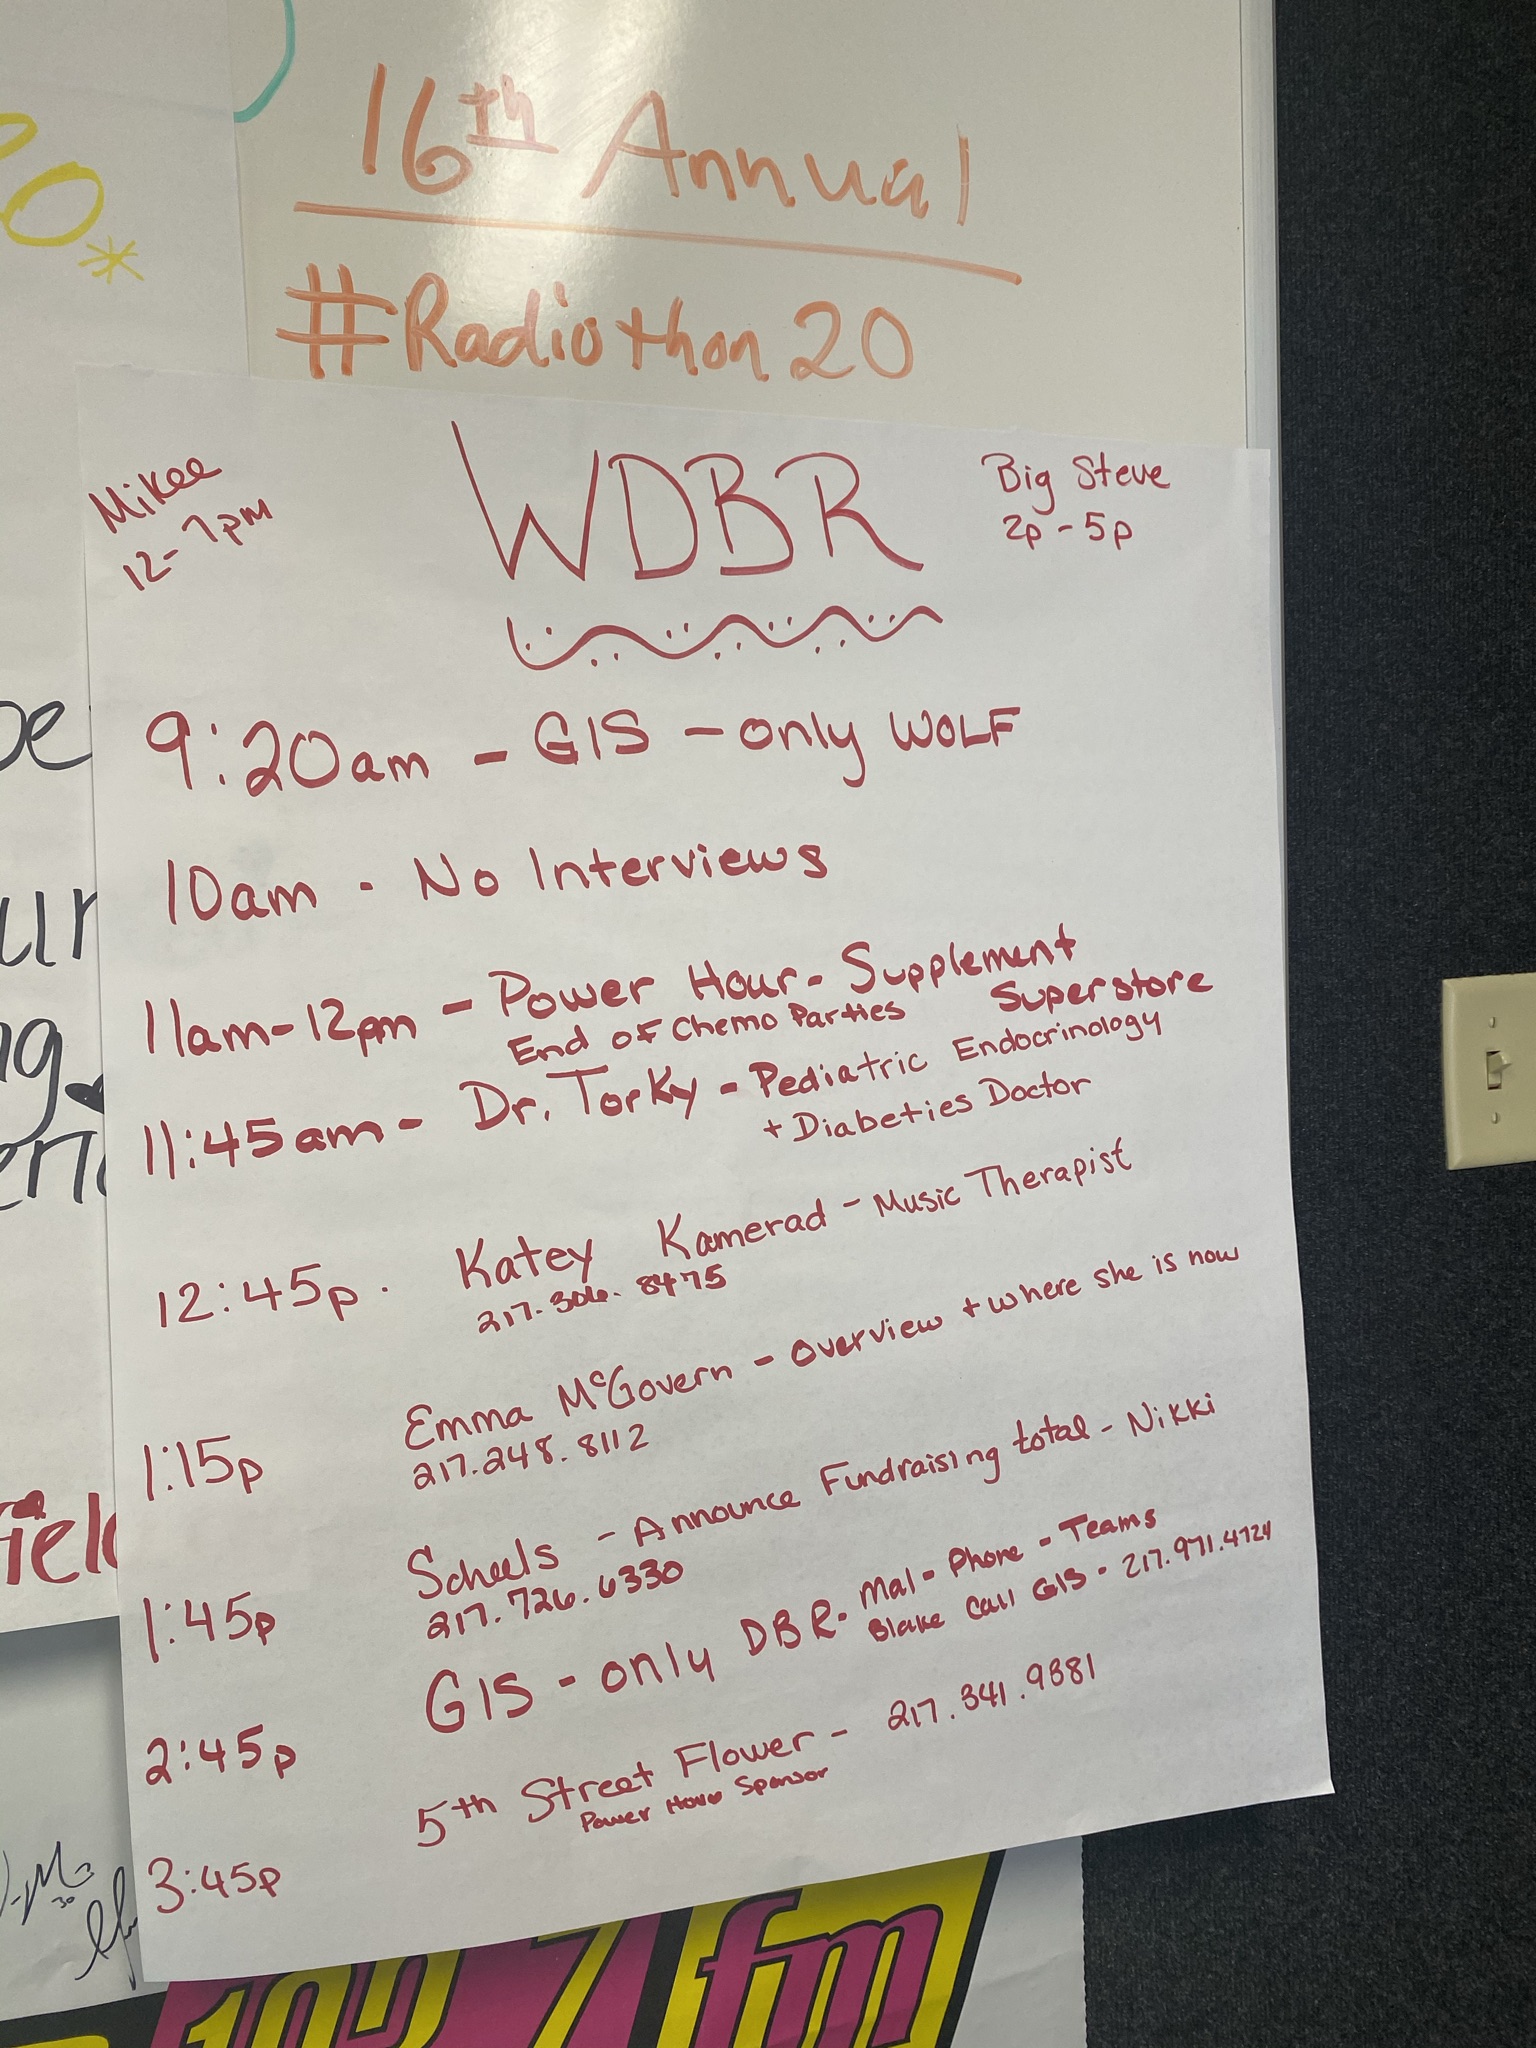 16th Annual
#Radiothon20
Mikee
12-7pm
WDBR
Big Steve
2p-5p
9:20am - GIS - only WOLF
10am - No Interviews
11am-12pm - Power Hour - Supplement Superstore
End of Chemo Parties
11:45am - Dr. Torky - Pediatric Endocrinology
+ Diabeties Doctor
12:45p. Katey Kamerad - Music Therapist
217.306.8475
1:15p Emma McGovern - Overview + where she is now
217.248.8112
1:45p Scheels - Announce Fundraising total - Nikki
217.726.6330
2:45p GIS - only DBR - Mal - Phone - Teams
Blake Call GIS - 217.971.4724
3:45p 5th Street Flower - 217.341.9881
Power Hour Sponsor
fm